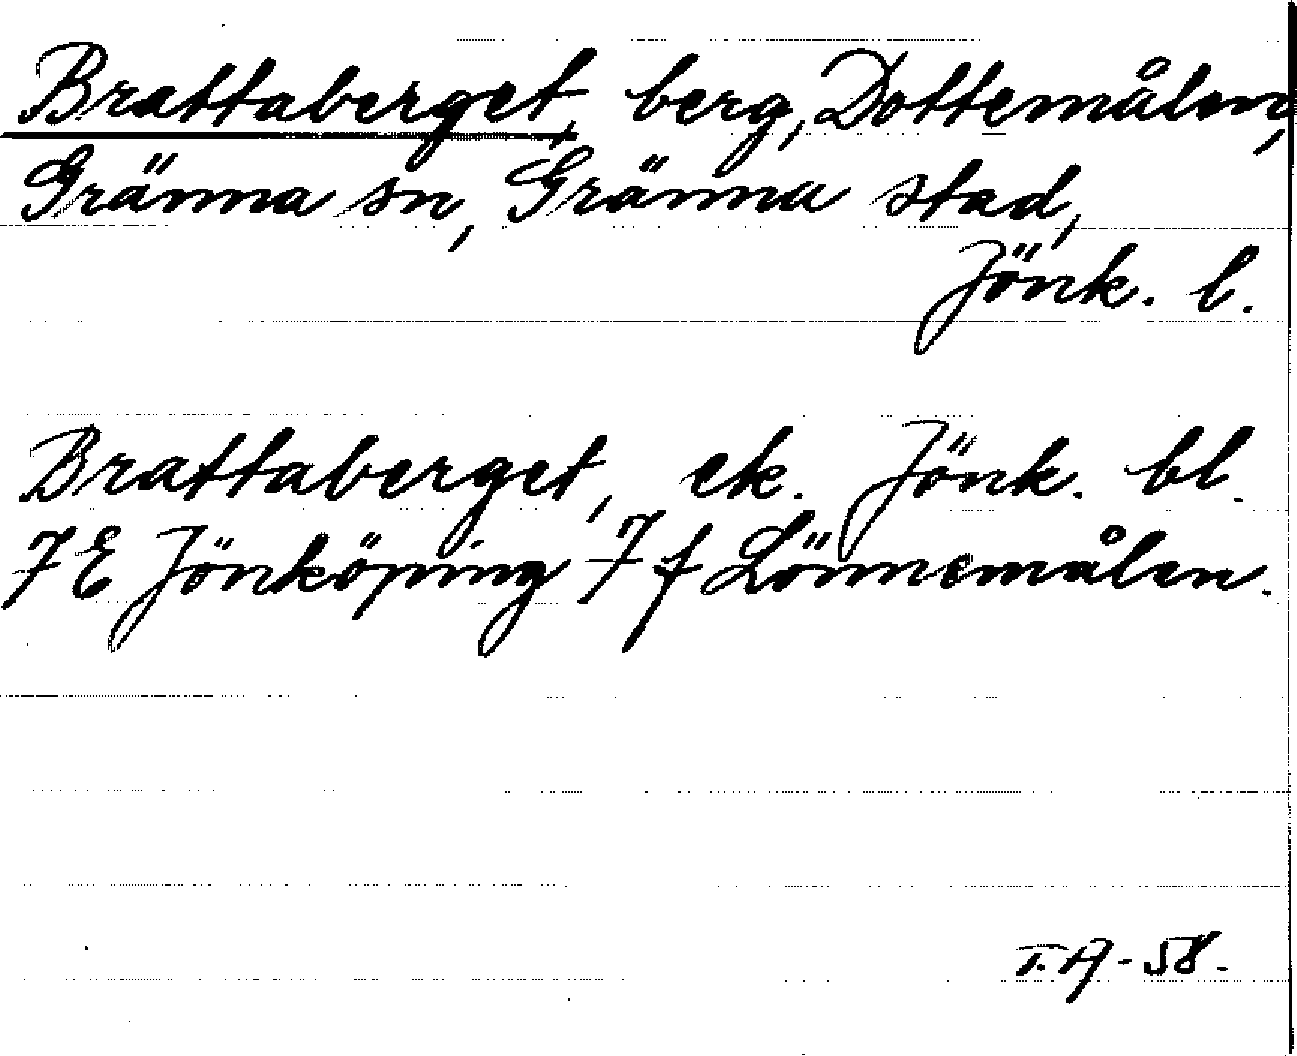 Brattaberget, berg, Dottemålen,
Gränna sn, Gränna stad,
Jönk. l.
Brattaberget, ek. Jönk. bl.
7 E Jönköping 7 f Lönnemålen.
T.A -58.